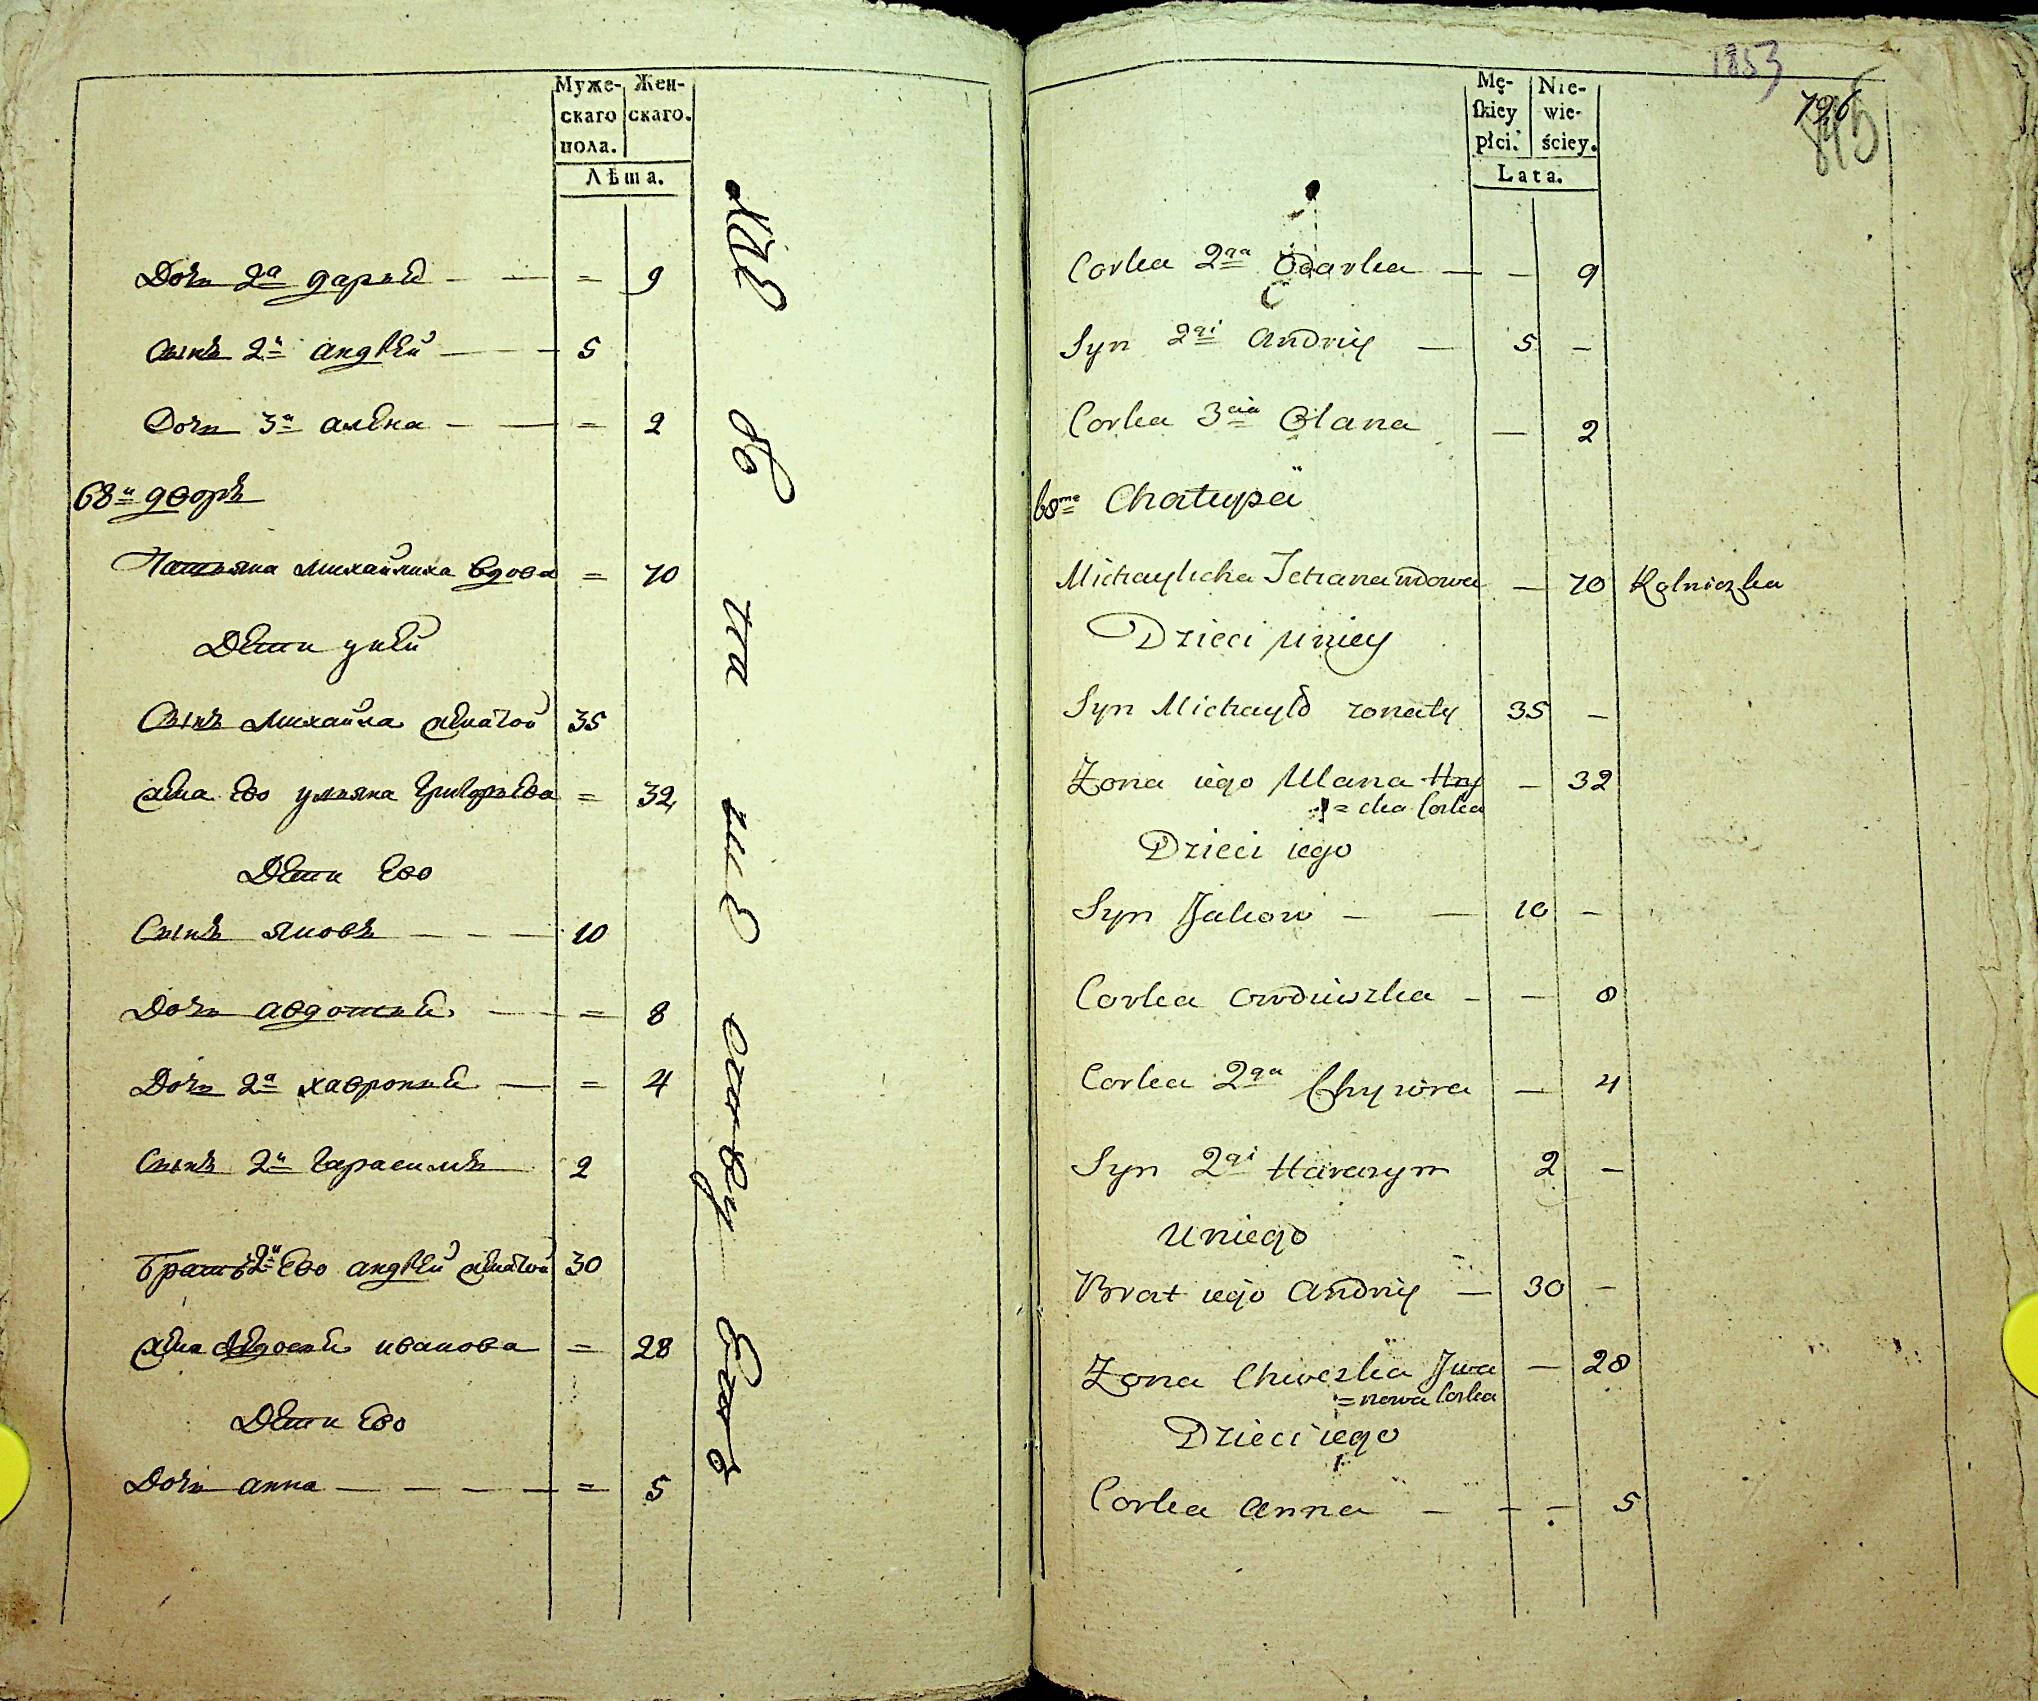 Муже- Жен-
скаго скаго.
пола.
Лѣта.
Дочь 2я дарья — — = 9
Сынъ 2й андрей — — 5
Дочь 3я алена — — = 2
68й дворъ
Татьяна михайлиха вдова = 70
Дети у ней
Сынъ михайла женатой 35
жена ево ульяна григорьева = 32
Дети ево
Сынъ яковъ — — — 10
Дочь авдотья — — = 8
Дочь 2я хавронья — = 4
Сынъ 2й гарасимъ 2
Братъ 2й ево андрей женатой 30
жена иванова = 28
Дети ево
Дочь анна — — — — = 5
1853
796
845
Mę- Nie-
ſkiey wie-
płci. ściey.
Lata.
Corka 2ga Odarka — — 9
Syn 2gi Andriy — 5 —
Corka 3cia Olana — 2
68me Chałupa
Michaylicha Tetiana wdowa — 70 Rolniczka
Dzieci u niey
Syn Michayło zonaty 35 —
Zona iego Ulana Hry — 32
= cka Corka
Dzieci iego
Syn Jakow — — 10 —
Corka Owdiuszka — — 8
Corka 2ga Chywra — 4
Syn 2gi Harasym 2 —
U niego
Brat iego Andriy — 30 —
Zona Chweska Jwa — 28
= nowa Corka
Dzieci iego
Corka Anna — — — 5